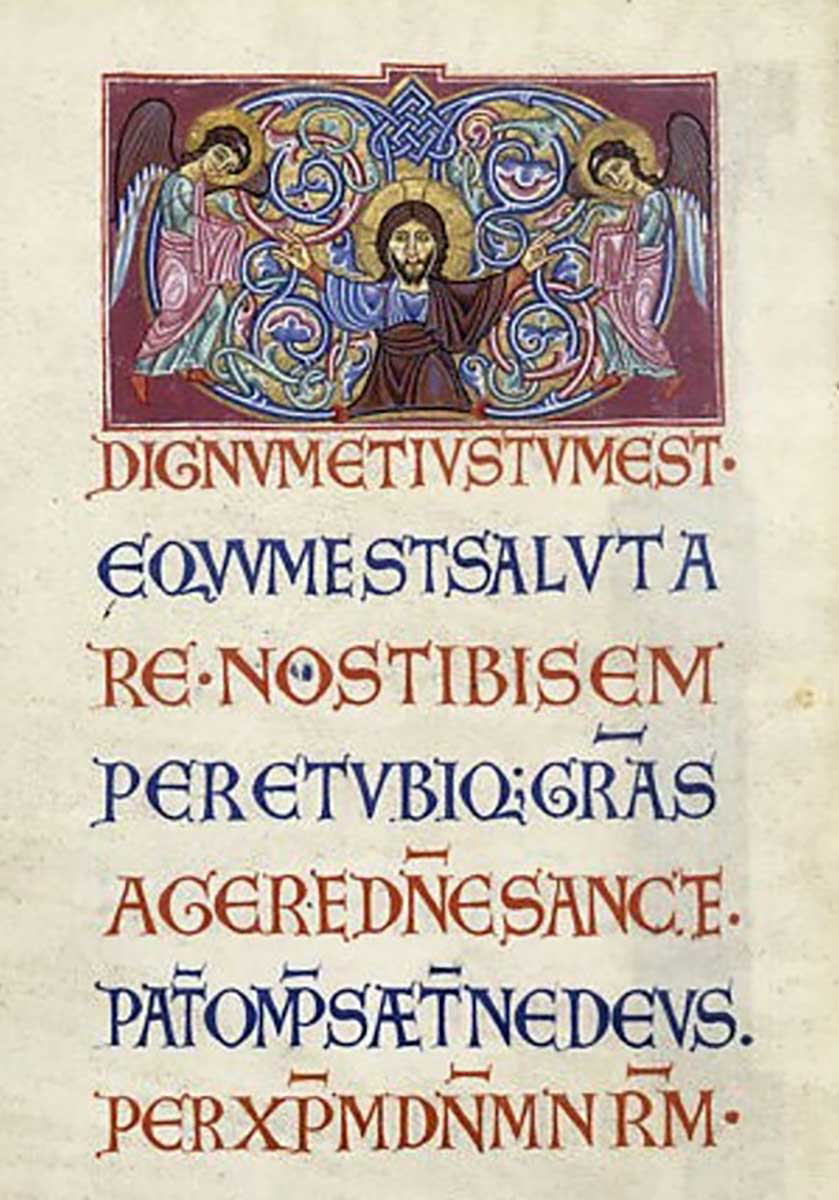 DIGNVMETIVSTVMEST·
EQVVMESTSALVTA
RE·NOSTIBISEM
PERETVBIQ;GRĀS
AGEREDN̄ESANCTE·
PAT̄OMP̄SÆT̄NEDEVS.
PERXP̄MDN̄MNR̄M·